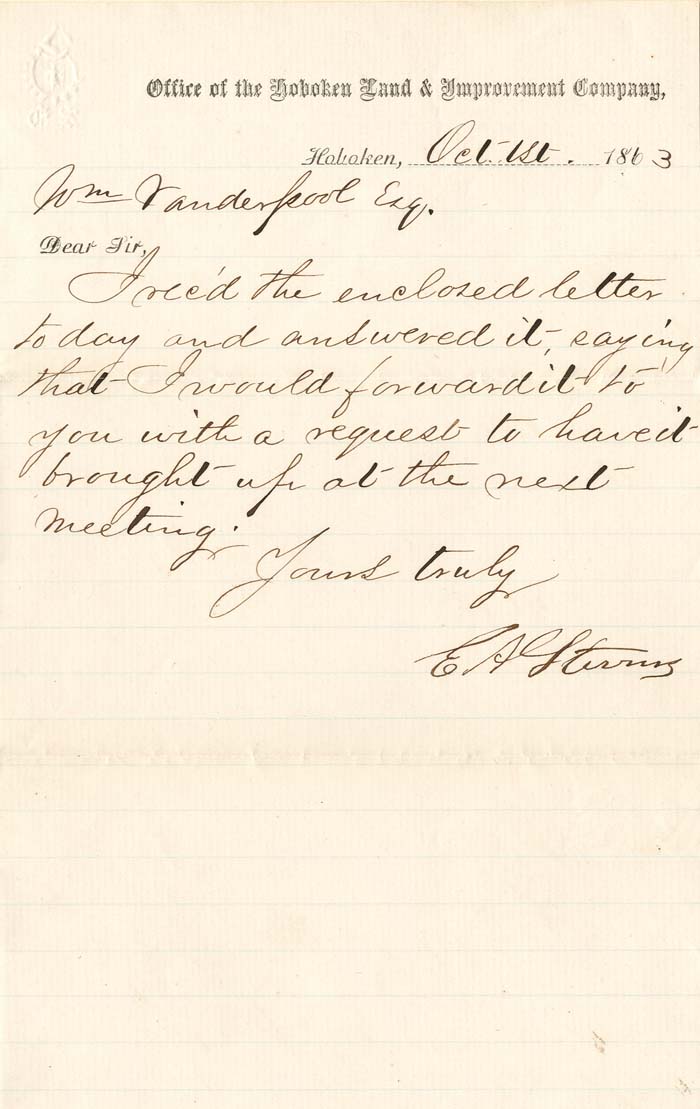 Office of the Hoboken Land & Improvement Company,
Hoboken, Oct. 1st. 1863
Wm Vanderpool Esq.
Dear Sir,
I rec'd the enclosed letter
today and answered it, saying
that I would forward it to
you with a request to have it
brought up at the next
meeting.
Yours truly
E A Stevens